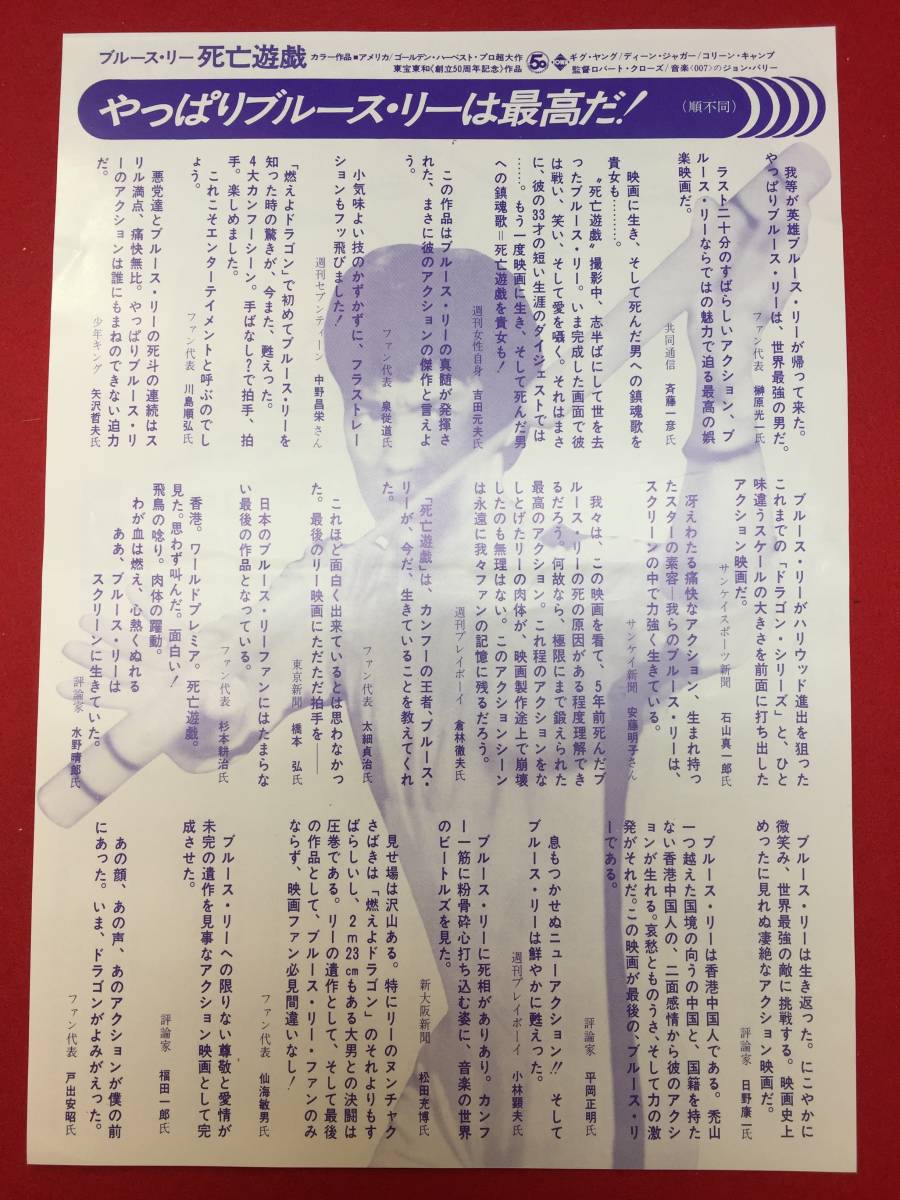 ブルース・リー 死亡遊戯 カラー作品■アメリカ/ゴールデン・ハーベスト・プロ超大作
東宝東和〈創立50周年記念〉作品
50
ギグ・ヤング/ディーン・ジャガー/コリーン・キャンプ
監督ロバート・クローズ/音楽〈007〉のジョン・バリー
やっぱりブルース・リーは最高だ!
(順不同)
我等が英雄ブルース・リーが帰って来た。
やっぱりブルース・リーは、世界最強の男だ。
ファン代表 榊原光一氏
ラスト二十分のすばらしいアクション、ブ
ルース・リーならではの魅力で迫る最高の娯
楽映画だ。
共同通信 斉藤一彦氏
映画に生き、そして死んだ男への鎮魂歌を
貴女も………。
〝死亡遊戯〟撮影中、志半ばにして世を去
ったブルース・リー。いま完成した画面で彼
は戦い、笑い、そして愛を囁く。それはまさ
に、彼の33才の短い生涯のダイジェストでは
……。もう一度映画に生き、そして死んだ男
への鎮魂歌=死亡遊戯を貴女も!
週刊女性自身 吉田元夫氏
この作品はブルース・リーの真随が発揮さ
れた、まさに彼のアクションの傑作と言えよ
う。
ファン代表 泉従道氏
小気味よい技のかずかずに、フラストレー
ションもフッ飛びました!
週刊セブンティーン 中野昌栄さん
「燃えよドラゴン」で初めてブルース・リーを
知った時の驚きが、今また、甦えった。
4大カンフーシーン。手ばなし?で拍手、拍
手。楽しめました。
これこそエンターテイメントと呼ぶのでし
ょう。
ファン代表 川島順弘氏
悪党達とブルース・リーの死斗の連続はス
リル満点、痛快無比。やっぱりブルース・リ
ーのアクションは誰にもまねのできない迫力
だ。
少年キング 矢沢哲夫氏
ブルース・リーがハリウッド進出を狙った
これまでの「ドラゴン・シリーズ」と、ひと
味違うスケールの大きさを前面に打ち出した
アクション映画だ。
サンケイスポーツ新聞 石山真一郎氏
冴えわたる痛快なアクション、生まれ持っ
たスターの業容―我らのブルース・リーは、
スクリーンの中で力強く生きている。
サンケイ新聞 安藤明子さん
我々は、この映画を看て、5年前死んだブ
ルース・リーの死の原因がある程度理解でき
るだろう。何故なら、極限にまで鍛えられた
最高のアクション。これ程のアクションをな
しとげたリーの肉体が、映画製作途上で崩壊
したのも無理はない。このアクションシーン
は永遠に我々ファンの記憶に残るだろう。
週刊プレイボーイ 倉林徹夫氏
「死亡遊戯」は、カンフーの王者、ブルース・
リーが、今だ、生きていることを教えてくれ
た。
ファン代表 太細貞治氏
これほど面白く出来ているとは思わなかっ
た。最後のリー映画にただただ拍手を――
東京新聞 橋本 弘氏
日本のブルース・リーファンにはたまらな
い最後の作品となっている。
ファン代表 杉本耕治氏
香港。ワールドプレミア。死亡遊戯。
見た。思わず叫んだ。面白い!
飛鳥の唸り。肉体の躍動。
わが血は燃え、心熱くぬれる
ああ、ブルース・リーは
スクリーンに生きていた。
評論家 水野晴郎氏
ブルース・リーは生き返った。にこやかに
微笑み、世界最強の敵に挑戦する。映画史上
めったに見れぬ凄絶なアクション映画だ。
評論家 日野康一氏
ブルース・リーは香港中国人である。禿山
一つ越えた国境の向うの中国と、国籍を持た
ない香港中国人の、二面感情から彼のアクシ
ョンが生れる。哀愁とものうさ、そして力の激
発がそれだ。この映画が最後の、ブルース・リ
ーである。
評論家 平岡正明氏
息もつかせぬニューアクション!! そして
ブルース・リーは鮮やかに甦えった。
週刊プレイボーイ 小林顕夫氏
ブルース・リーに死相がありあり。カンフ
ー一筋に粉骨砕心打ち込む姿に、音楽の世界
のビートルズを見た。
新大阪新聞 松田充博氏
見せ場は沢山ある。特にリーのヌンチャク
さばきは「燃えよドラゴン」のそれよりもす
ばらしいし、2m23cmもある大男との決闘は
圧巻である。リーの遺作として、そして最後
の作品として、ブルース・リー・ファンのみ
ならず、映画ファン必見間違いなし!
ファン代表 仙海敏男氏
ブルース・リーへの限りない尊敬と愛情が
未完の遺作を見事なアクション映画として完
成させた。
評論家 福田一郎氏
あの顔、あの声、あのアクションが僕の前
にあった。いま、ドラゴンがよみがえった。
ファン代表 戸出安昭氏